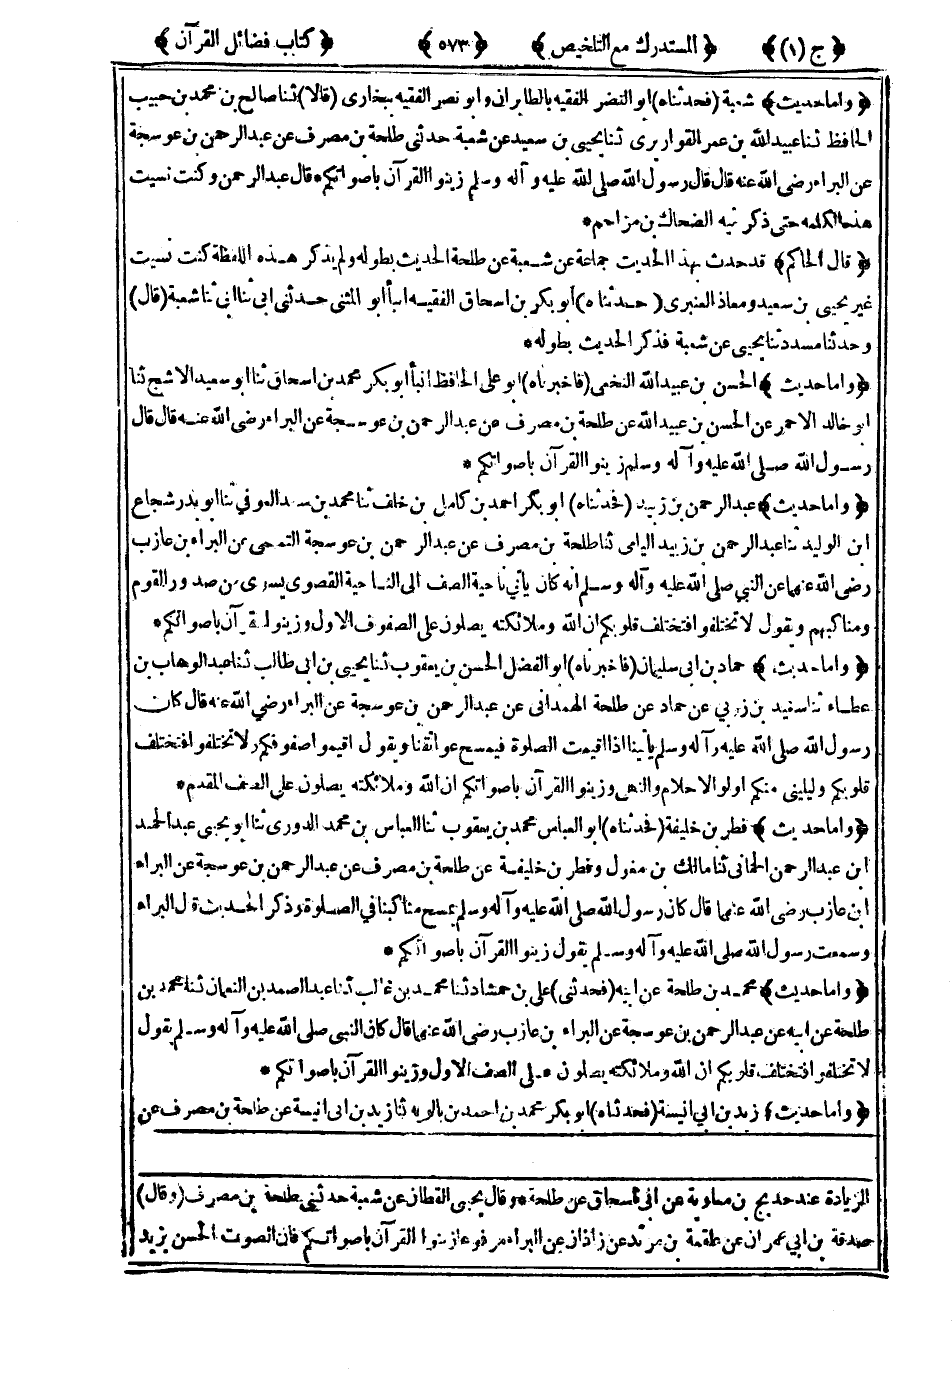 ﴿ ج (١) ﴾ ﴿ المستدرك مع التلخيص ﴾ ﴿ ٥٧٣ ﴾ ﴿ كتاب فضائل القرآن ﴾
﴿ واما حديث ﴾ شعبة (فحدثناه) ابو النضر الفقيه بالطابران وابو نصر الفقيه ببخارى (قالا) ثنا صالح بن محمد بن حبيب
الحافظ ثنا عبيد الله بن عمر القواريرى ثنا يحيى بن سعيد عن شعبة حدثنى طلحة بن مصرف عن عبد الرحمن بن عوسجة
عن البراء رضى الله عنه قال قال رسول الله صلى الله عليه وآله وسلم زينوا القرآن باصواتكم * قال عبد الرحمن وكنت نسيت
هذه الكلمه حتى ذكرنيه الضحاك بن مزاحم *
﴿ قال الحاكم ﴾ قد حدث بهذا الحديث جماعة عن شعبة عن طلحة الحديث بطوله ولم يذكر هذه اللفظة كنت نسيت
غير يحيى بن سعيد ومعاذ العنبرى (حدثناه) أبو بكر بن اسحاق الفقيه انبأ أبو المثنى حدثنى ابى ثنا ابى ثنا شعبة (قال)
وحدثنا مسدد ثنا يحيى عن شعبة فذكر الحديث بطوله *
﴿ واما حديث ﴾ الحسن بن عبيد الله النخعى (فاخبرناه) ابو على الحافظ انبأ ابو بكر محمد بن اسحاق ثنا ابو سعيد الاشج ثنا
ابو خالد الاحمر عن الحسن بن عبيد الله عن طلحة بن مصرف عن عبد الرحمن بن عوسجة عن البراء رضى الله عنه قال قال
رسول الله صلى الله عليه وآله وسلم زينوا القرآن باصواتكم *
﴿ واما حديث ﴾ عبد الرحمن بن زبيد (فحدثناه) ابو بكر احمد بن كامل بن خلف ثنا محمد بن سعد العوفى ثنا ابو بدر شجاع
ابن الوليد ثنا عبد الرحمن بن زبيد اليامى ثنا طلحة بن مصرف عن عبد الرحمن بن عوسجة النهمى عن البراء بن عازب
رضى الله عنهما عن النبي صلى الله عليه وآله وسلم انه كان يأتى ناحية الصف الى الناحية القصوى يسوى بين صدور القوم
ومناكبهم ويقول لا تختلفوا فتختلف قلوبكم ان الله وملائكته يصلون على الصفوف الاول وزينوا القرآن باصواتكم *
﴿ واما حديث ﴾ حماد بن ابى سليمان (فاخبرناه) ابو الفضل الحسن بن يعقوب ثنا يحيى بن ابى طالب ثنا عبد الوهاب بن
عطاء ثنا سعيد بن زربي عن حماد عن طلحة الهمدانى عن عبد الرحمن بن عوسجة عن البراء رضي الله عنه قال كان
رسول الله صلى الله عليه وآله وسلم يأتينا اذا اقيمت الصلوة فيمسح عواتقنا ويقول اقيموا صفوفكم ولا تختلفوا فتختلف
قلوبكم وليلينى منكم اولوا الاحلام والنهى وزينوا القرآن باصواتكم ان الله وملائكته يصلون على الصف المقدم *
﴿ واما حديث ﴾ فطر بن خليفة (فحدثناه) ابو العباس محمد بن يعقوب ثنا العباس بن محمد الدورى ثنا ابو يحيى عبد الحميد
ابن عبد الرحمن الحمانى ثنا مالك بن مغول وفطر بن خليفة عن طلحة بن مصرف عن عبد الرحمن بن عوسجة عن البراء
ابن عازب رضى الله عنهما قال كان رسول الله صلى الله عليه وآله وسلم يمسح مناكبنا في الصلوة وذكر الحديث قال البراء
وسمعت رسول الله صلى الله عليه وآله وسلم يقول زينوا القرآن باصواتكم *
﴿ واما حديث ﴾ محمد بن طلحة عن ابيه (فحدثنى) على بن حمشاد ثنا محمد بن غالب ثنا عبد الصمد بن النعمان ثنا محمد بن
طلحة عن ابيه عن عبد الرحمن بن عوسجة عن البراء بن عازب رضى الله عنهما قال كان النبى صلى الله عليه وآله وسلم يقول
لا تختلفوا فتختلف قلوبكم ان الله وملائكته يصلون على الصف الاول وزينوا القرآن باصواتكم *
﴿ واما حديث ﴾ زيد بن ابى انيسة (فحدثناه) ابو بكر محمد بن احمد بن بالويه ثنا زيد بن ابى انيسة عن طلحة بن مصرف عن
الزيادة عند حديج بن معاوية عن ابى اسحاق عن طلحة * وقال يحيى القطان عن شعبة حدثنى طلحة بن مصرف (وقال)
صدقة بن ابى عمران عن علقمة بن مرثد عن زاذان عن البراء مرفوعا زينوا القرآن باصواتكم فان الصوت الحسن يزيد